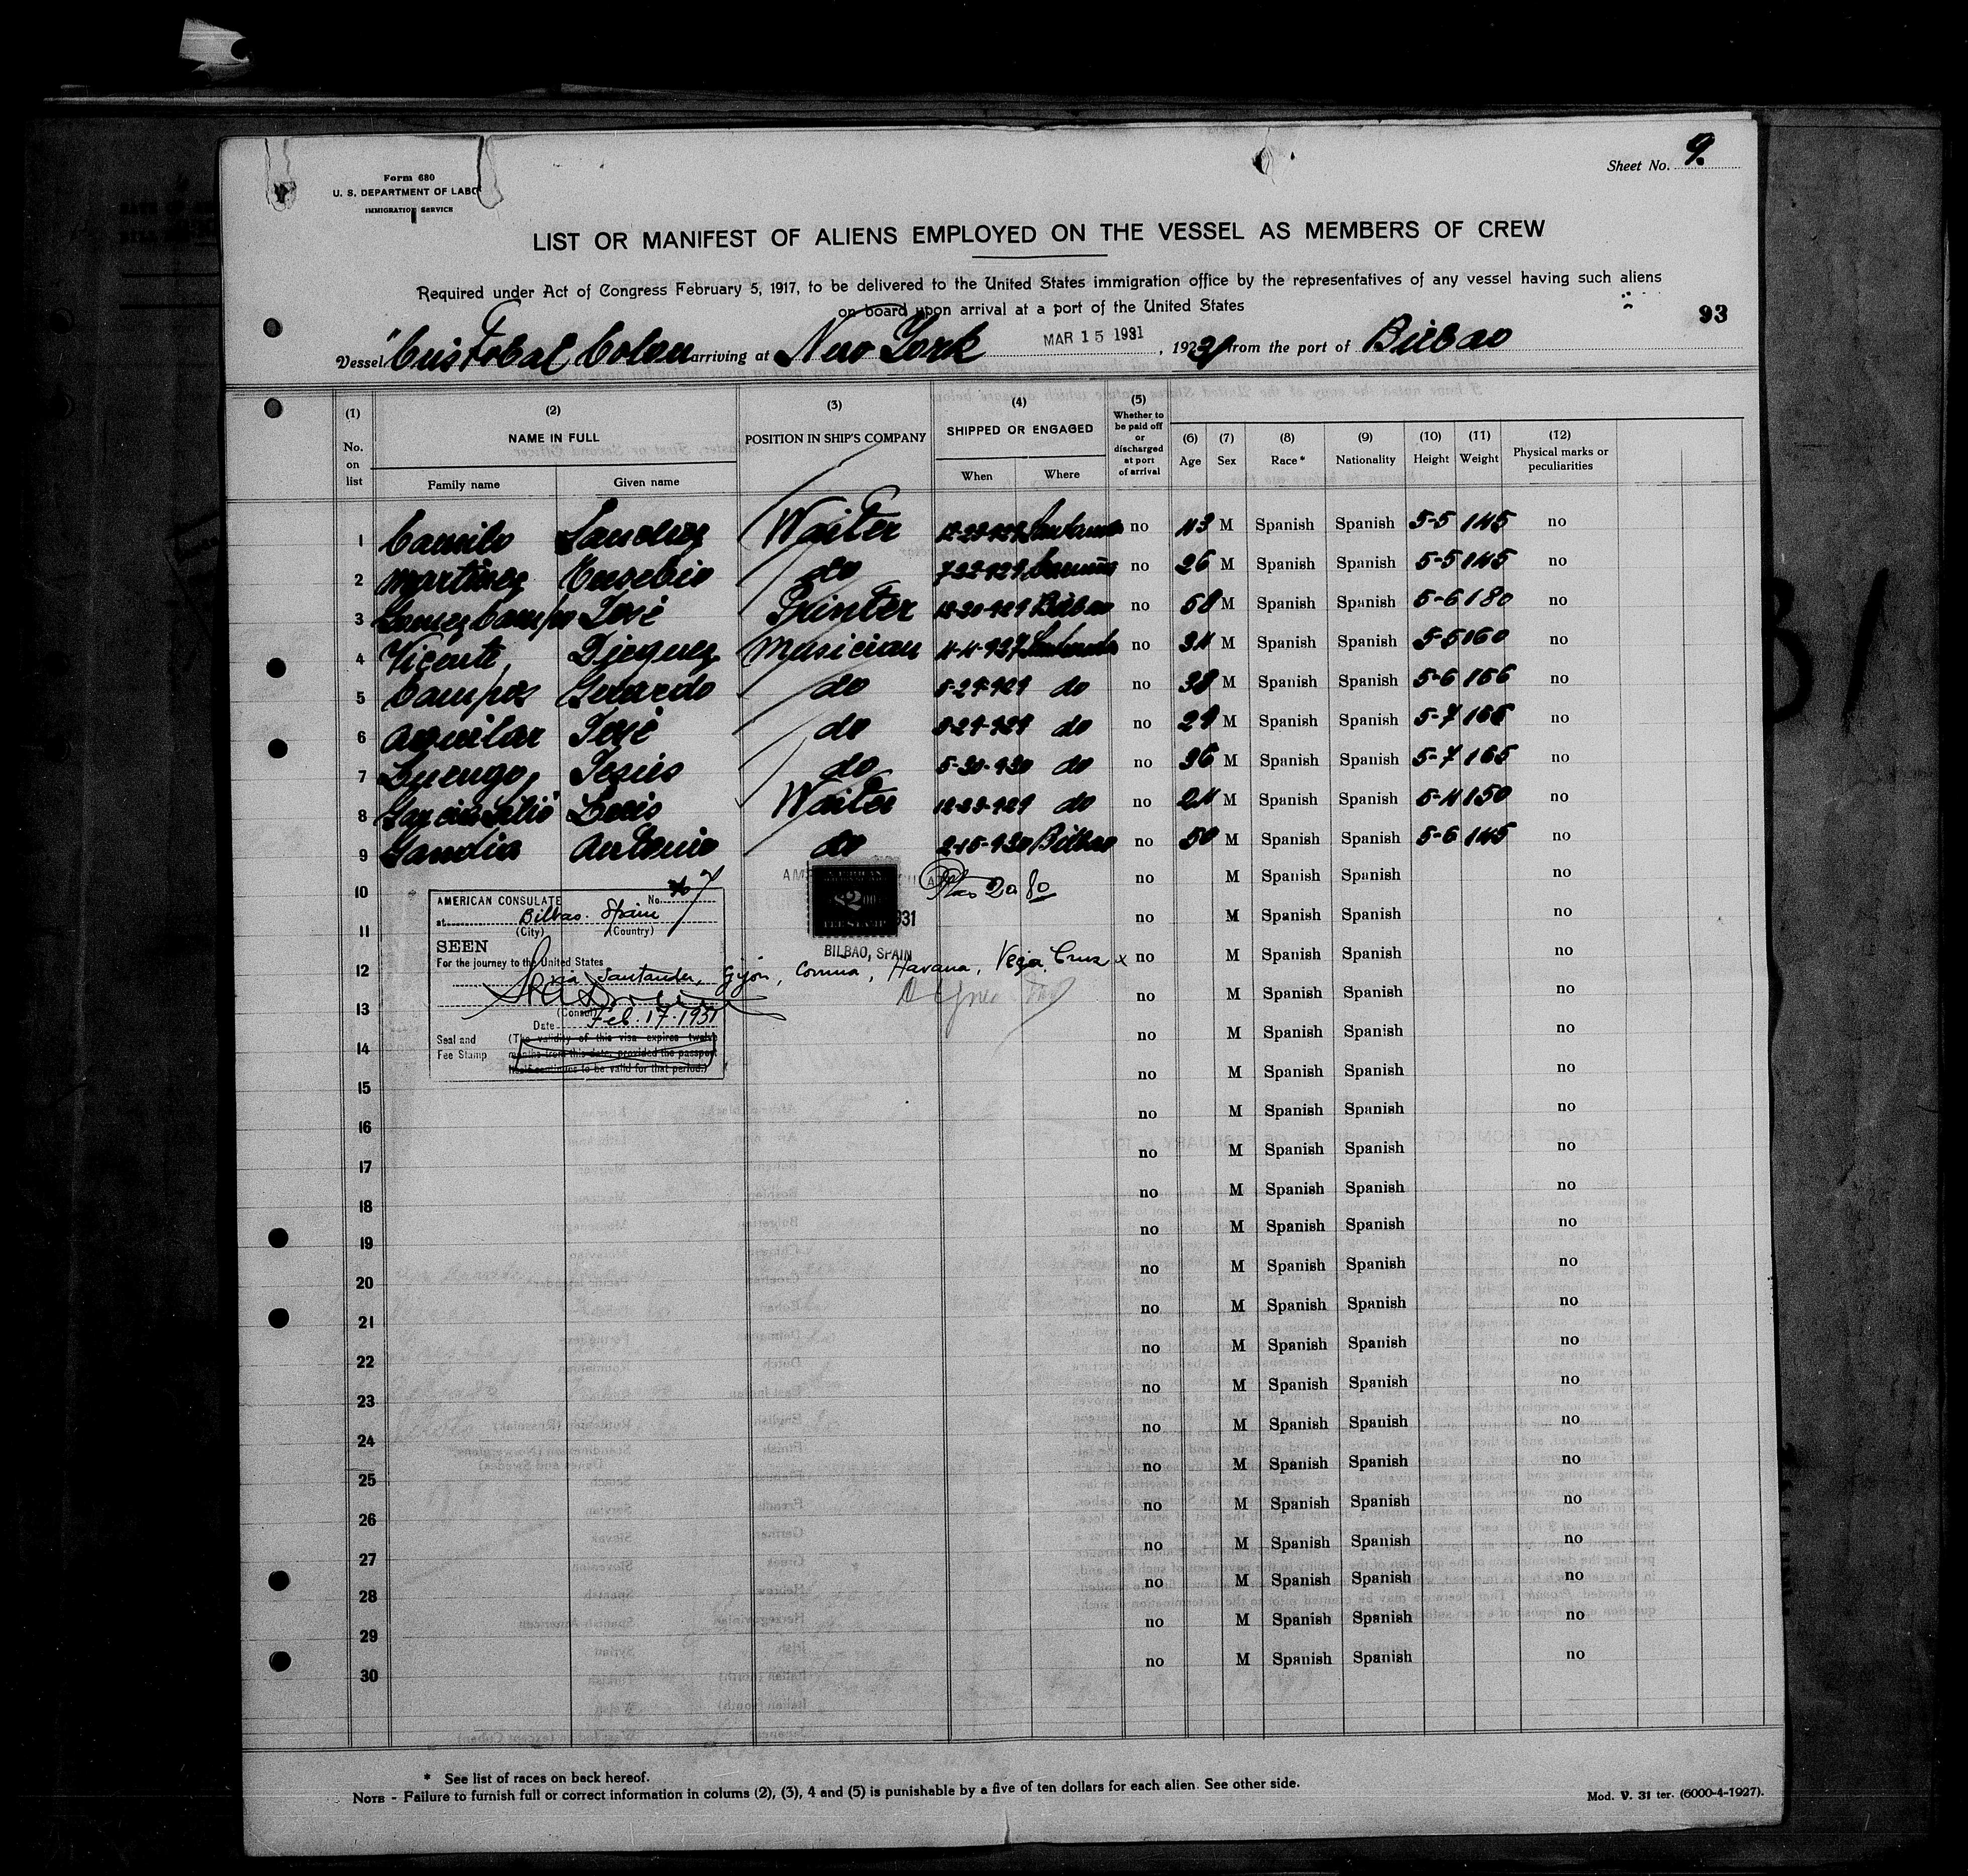 Sheet No. 9.
Form 680
U. S. DEPARTMENT OF LABO
IMMIGRATION SERVICE
LIST OR MANIFEST OF ALIENS EMPLOYED ON THE VESSEL AS MEMBERS OF CREW
Required under Act of Congress February 5, 1917, to be delivered to the United States immigration office by the representatives of any vessel having such aliens
on board upon arrival at a port of the United States
93
Vessel "Cristobal Colon arriving at New York MAR 15 1931, 1931 from the port of Bilbao
(1) (2) (3) (4) (5) (6) (7) (8) (9) (10) (11) (12)
No. on list NAME IN FULL POSITION IN SHIP'S COMPANY SHIPPED OR ENGAGED Whether to be paid off or discharged at port of arrival Age Sex Race* Nationality Height Weight Physical marks or peculiarities
Family name Given name When Where
1 Camilo Sanchez Waiter no 43 M Spanish Spanish 5-5 145 no
2 Martinez Eusebio do no 26 M Spanish Spanish 5-5 145 no
3 José Printer Bilbao no 58 M Spanish Spanish 5-6 180 no
4 Vicente, Musician no 34 M Spanish Spanish 5-5 160 no
5 Campos Gerardo do do no 38 M Spanish Spanish 5-6 166 no
6 Aguilar José do do no 29 M Spanish Spanish 5-7 166 no
7 Luengo, Jesus do 5-30-930 do no 36 M Spanish Spanish 5-7 165 no
8 Luis Waiter do no 24 M Spanish Spanish 5-4 150 no
9 Gandia Antonio do 2-15-930 Bilbao no 50 M Spanish Spanish 5-6 145 no
10 no M Spanish Spanish no
11 no M Spanish Spanish no
12 no M Spanish Spanish no
13 no M Spanish Spanish no
14 no M Spanish Spanish no
15 no M Spanish Spanish no
16 no M Spanish Spanish no
17 no M Spanish Spanish no
18 no M Spanish Spanish no
19 no M Spanish Spanish no
20 no M Spanish Spanish no
21 no M Spanish Spanish no
22 no M Spanish Spanish no
23 no M Spanish Spanish no
24 no M Spanish Spanish no
25 no M Spanish Spanish no
26 no M Spanish Spanish no
27 no M Spanish Spanish no
28 no M Spanish Spanish no
29 no M Spanish Spanish no
30 no M Spanish Spanish no
AMERICAN CONSULATE No.
at Bilbao Spain
(City) (Country)
SEEN
For the journey to the United States
via Santander, Gijon, Coruna, Havana, Vera Cruz
(Consul)
Date Feb. 17. 1931
Seal and Fee Stamp
(The validity of this visa expires twelve
months from this date, provided the passport
itself continues to be valid for that period.)
$2.00
FEE STAMP
931
BILBAO, SPAIN
Ptas 20.80
* See list of races on back hereof.
NOTE - Failure to furnish full or correct information in colums (2), (3), 4 and (5) is punishable by a five of ten dollars for each alien. See other side.
Mod. V. 31 ter. (6000-4-1927).